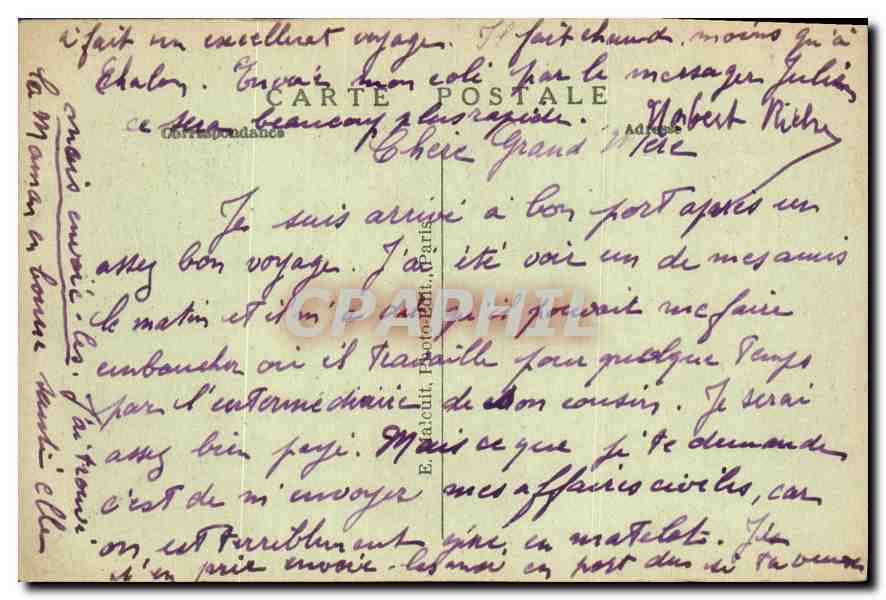 Chère Grand Mère
Je suis arrivé à bon port après un
assez bon voyage. J'ai été voir un de mes amis
le matin et il m'a dit qu'il pouvait me faire
embaucher où il travaille pour quelque temps
par l'intermédiaire de son cousin. Je serai
assez bien payé. Mais ce que je te demande
c'est de m'envoyer mes affaires civiles, car
on est terriblement gêné en matelot. Je
t'en prie envoie-les moi en port dus si tu veux
mais envoie-les. J'ai trouvé
la Maman en bonne santé elle
a fait un excellent voyage. Il fait chaud moins qu'à
Chalon. Envoie mon coli par le messager Julien
ce sera beaucoup plus rapide. Norbert
CARTE POSTALE
Correspondance
Adresse
E. Malcuit, Photo-Édit., Paris
CPAPHIL